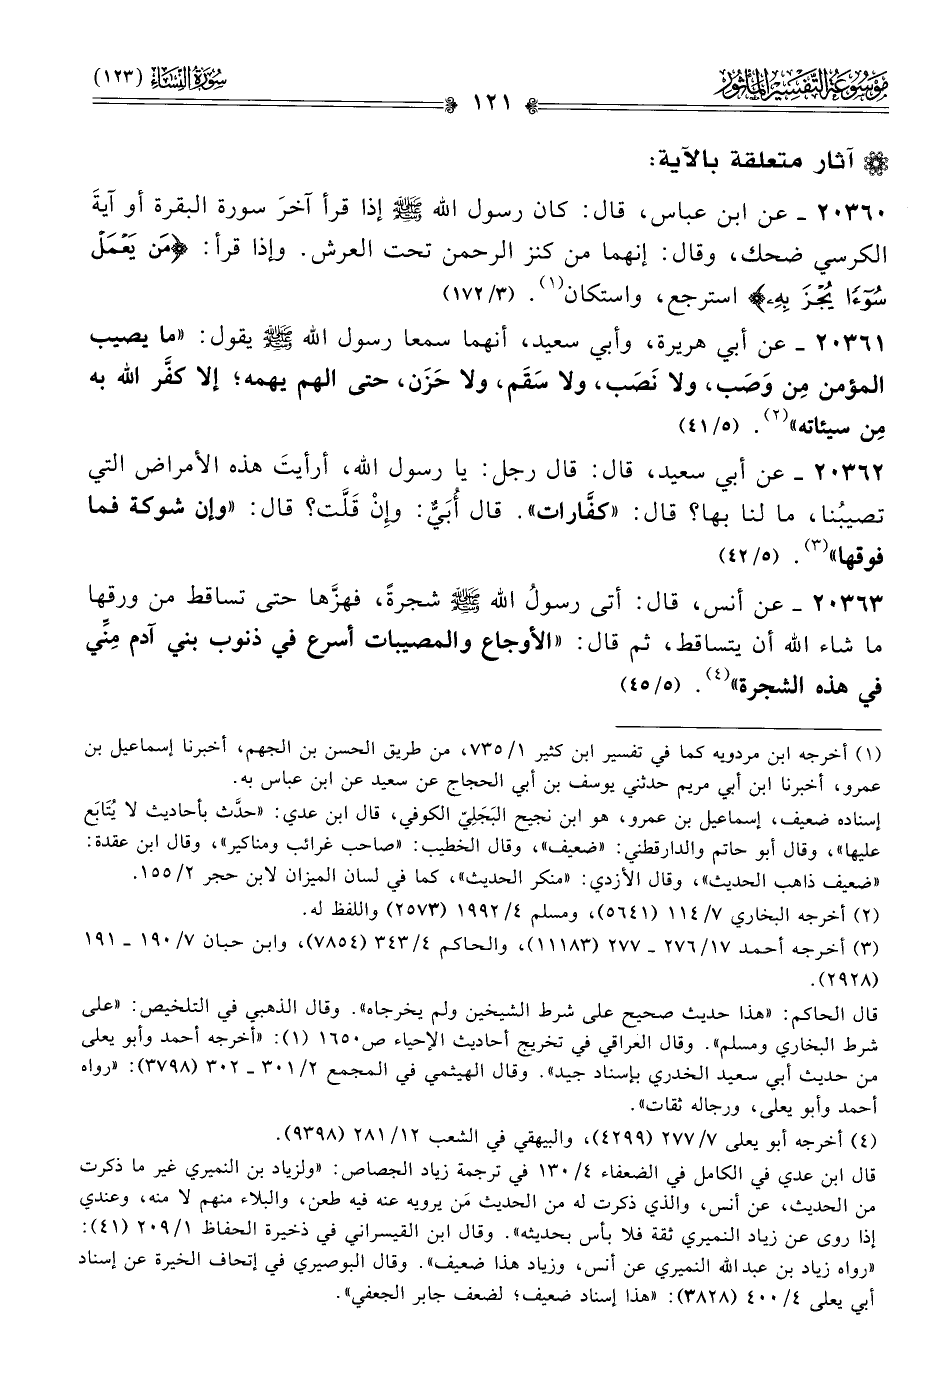 موسوعة التفسير المأثور
سورة النساء (١٢٣)
١٢١
آثار متعلقة بالآية:
٢٠٣٦٠ ـ عن ابن عباس، قال: كان رسول الله ﷺ إذا قرأ آخرَ سورة البقرة أو آيةَ
الكرسي ضحك، وقال: إنهما من كنز الرحمن تحت العرش. وإذا قرأ: ﴿مَن يَعۡمَلۡ
سُوٓءٗا يُجۡزَ بِهِۦ﴾ استرجع، واستكان(١). (١٧٢/٣)
٢٠٣٦١ ـ عن أبي هريرة، وأبي سعيد، أنهما سمعا رسول الله ﷺ يقول: «ما يصيب
المؤمن مِن وَصَب، ولا نَصَب، ولا سَقَم، ولا حَزَن، حتى الهم يهمه؛ إلا كفَّر الله به
مِن سيئاته»(٢). (٤١/٥)
٢٠٣٦٢ ـ عن أبي سعيد، قال: قال رجل: يا رسول الله، أرأيتَ هذه الأمراض التي
تصيبُنا، ما لنا بها؟ قال: «كفَّارات». قال أُبَيٌّ: وإنْ قَلَّت؟ قال: «وإن شوكة فما
فوقها»(٣). (٤٢/٥)
٢٠٣٦٣ ـ عن أنس، قال: أتى رسولُ الله ﷺ شجرةً، فهزَّها حتى تساقط من ورقها
ما شاء الله أن يتساقط، ثم قال: «الأوجاع والمصيبات أسرع في ذنوب بني آدم مِنِّي
في هذه الشجرة»(٤). (٤٥/٥)
(١) أخرجه ابن مردويه كما في تفسير ابن كثير ٧٣٥/١، من طريق الحسن بن الجهم، أخبرنا إسماعيل بن
عمرو، أخبرنا ابن أبي مريم حدثني يوسف بن أبي الحجاج عن سعيد عن ابن عباس به.
إسناده ضعيف، إسماعيل بن عمرو، هو ابن نجيح البَجَليّ الكوفي، قال ابن عدي: «حدَّث بأحاديث لا يُتَابَع
عليها»، وقال أبو حاتم والدارقطني: «ضعيف»، وقال الخطيب: «صاحب غرائب ومناكير»، وقال ابن عقدة:
«ضعيف ذاهب الحديث»، وقال الأزدي: «منكر الحديث»، كما في لسان الميزان لابن حجر ١٥٥/٢.
(٢) أخرجه البخاري ١١٤/٧ (٥٦٤١)، ومسلم ١٩٩٢/٤ (٢٥٧٣) واللفظ له.
(٣) أخرجه أحمد ٢٧٦/١٧ ـ ٢٧٧ (١١١٨٣)، والحاكم ٣٤٣/٤ (٧٨٥٤)، وابن حبان ١٩٠/٧ ـ ١٩١
(٢٩٢٨).
قال الحاكم: «هذا حديث صحيح على شرط الشيخين ولم يخرجاه». وقال الذهبي في التلخيص: «على
شرط البخاري ومسلم». وقال العراقي في تخريج أحاديث الإحياء ص١٦٥٠ (١): «أخرجه أحمد وأبو يعلى
من حديث أبي سعيد الخدري بإسناد جيد». وقال الهيثمي في المجمع ٣٠١/٢ ـ ٣٠٢ (٣٧٩٨): «رواه
أحمد وأبو يعلى، ورجاله ثقات».
(٤) أخرجه أبو يعلى ٢٧٧/٧ (٤٢٩٩)، والبيهقي في الشعب ٢٨١/١٢ (٩٣٩٨).
قال ابن عدي في الكامل في الضعفاء ١٣٠/٤ في ترجمة زياد الجصاص: «ولزياد بن النميري غير ما ذكرت
من الحديث، عن أنس، والذي ذكرت له من الحديث مَن يرويه عنه فيه طعن، والبلاء منهم لا منه، وعندي
إذا روى عن زياد النميري ثقة فلا بأس بحديثه». وقال ابن القيسراني في ذخيرة الحفاظ ٢٠٩/١ (٤١):
«رواه زياد بن عبدالله النميري عن أنس، وزياد هذا ضعيف». وقال البوصيري في إتحاف الخيرة عن إسناد
أبي يعلى ٤٠٠/٤ (٣٨٢٨): «هذا إسناد ضعيف؛ لضعف جابر الجعفي».